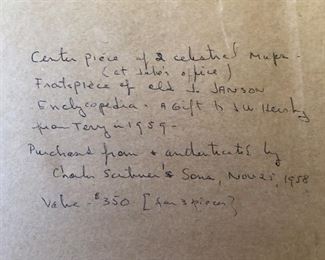 Center piece of 2 celestial maps -
(at John's office)
Frontspiece of old J. JANSON
Enclycopedia. A Gift to J.W.
from Terry in 1959 -
Purchased from & authenticated by
Charles Scribner's Sons, Nov 25, 1958
Value - $350 [for 3 pieces?]